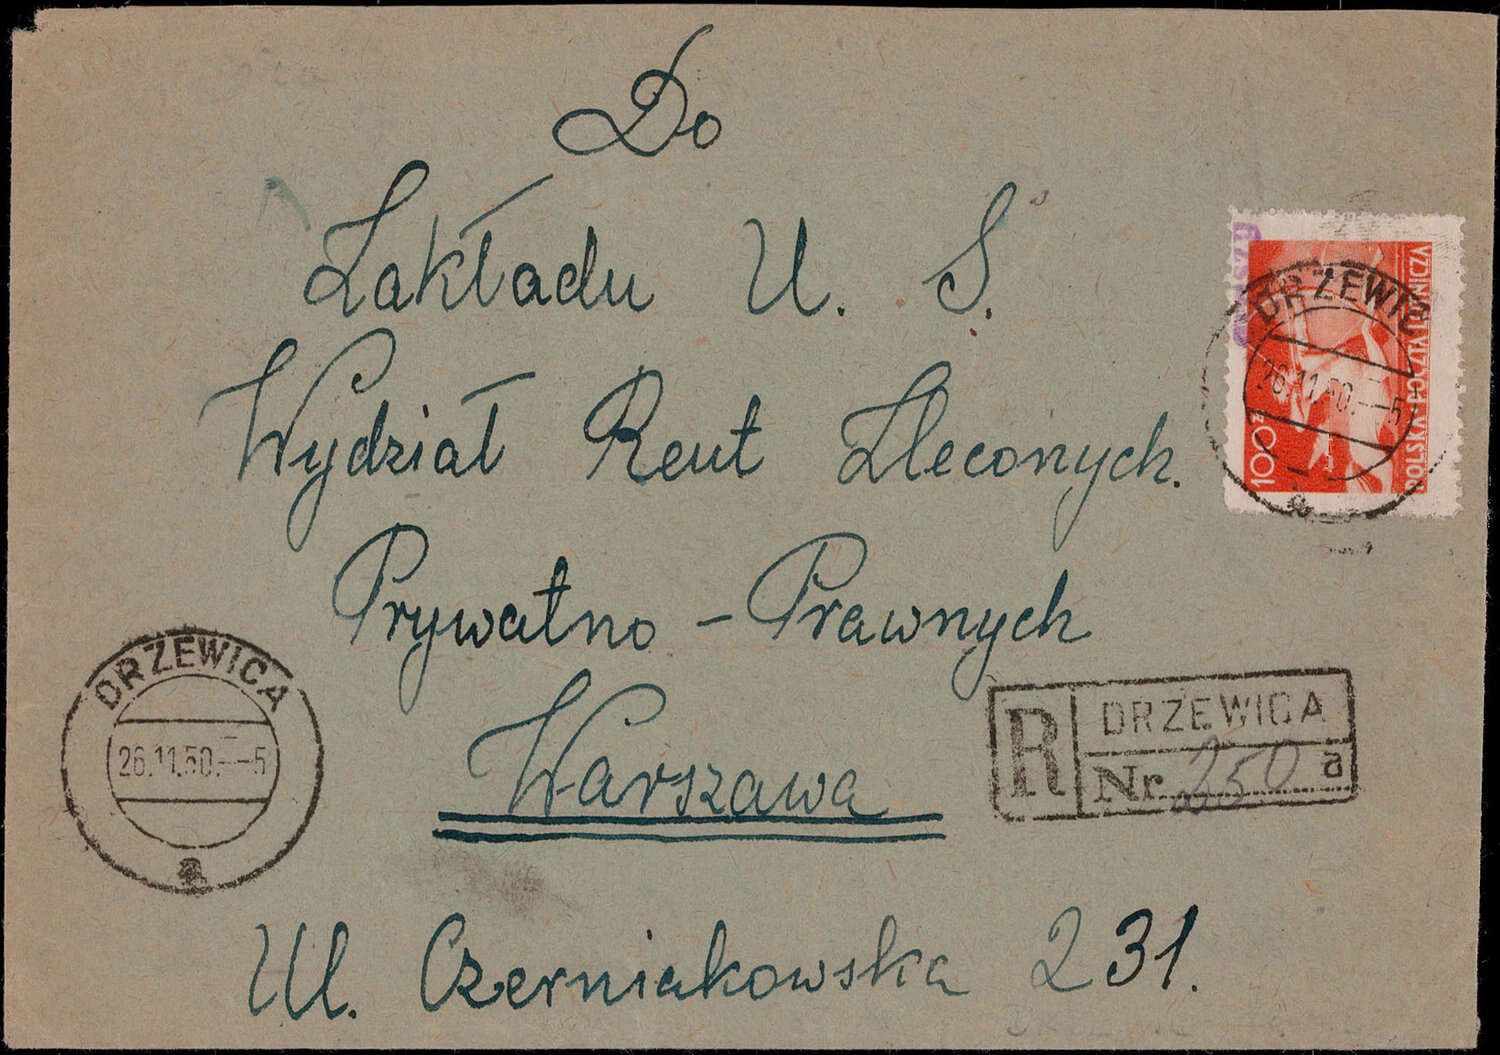 Do
Zakładu U. S.
Wydział Rent Zleconych.
Prywatno - Prawnych
Warszawa
Ul. Czerniakowska 231.
DRZEWIC
26.11.50.--5
a
100 zł
POLSKA POCZTA LOTNICZA
DRZEWICA
26.11.50.--5
a
R DRZEWICA
Nr 250 a